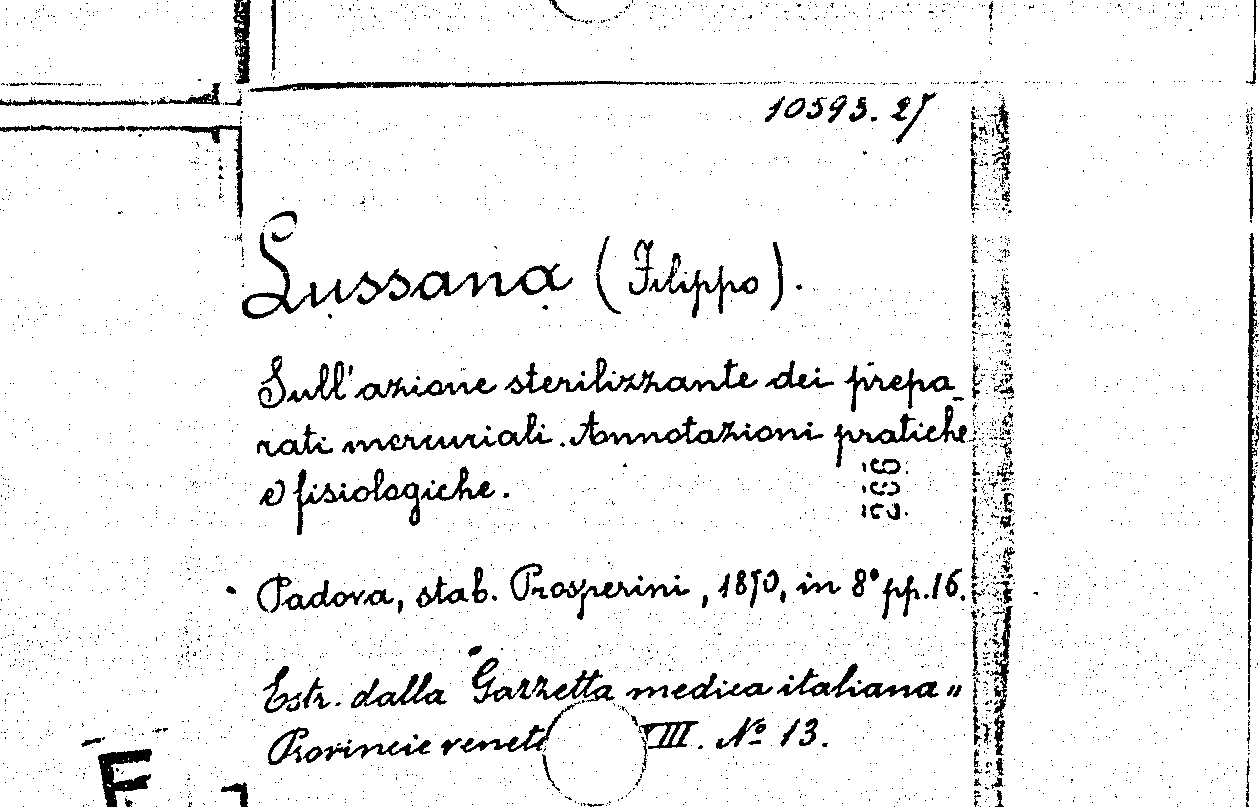 10593. 27
Lussana (Filippo).
Sull'azione sterilizzante dei prepa_
rati mercuriali. Annotazioni pratiche
e fisiologiche.
Padova, stab. Prosperini, 1870, in 8° pp. 16.
Estr. dalla "Gazzetta medica italiana"
Provincie III. Nº 13.